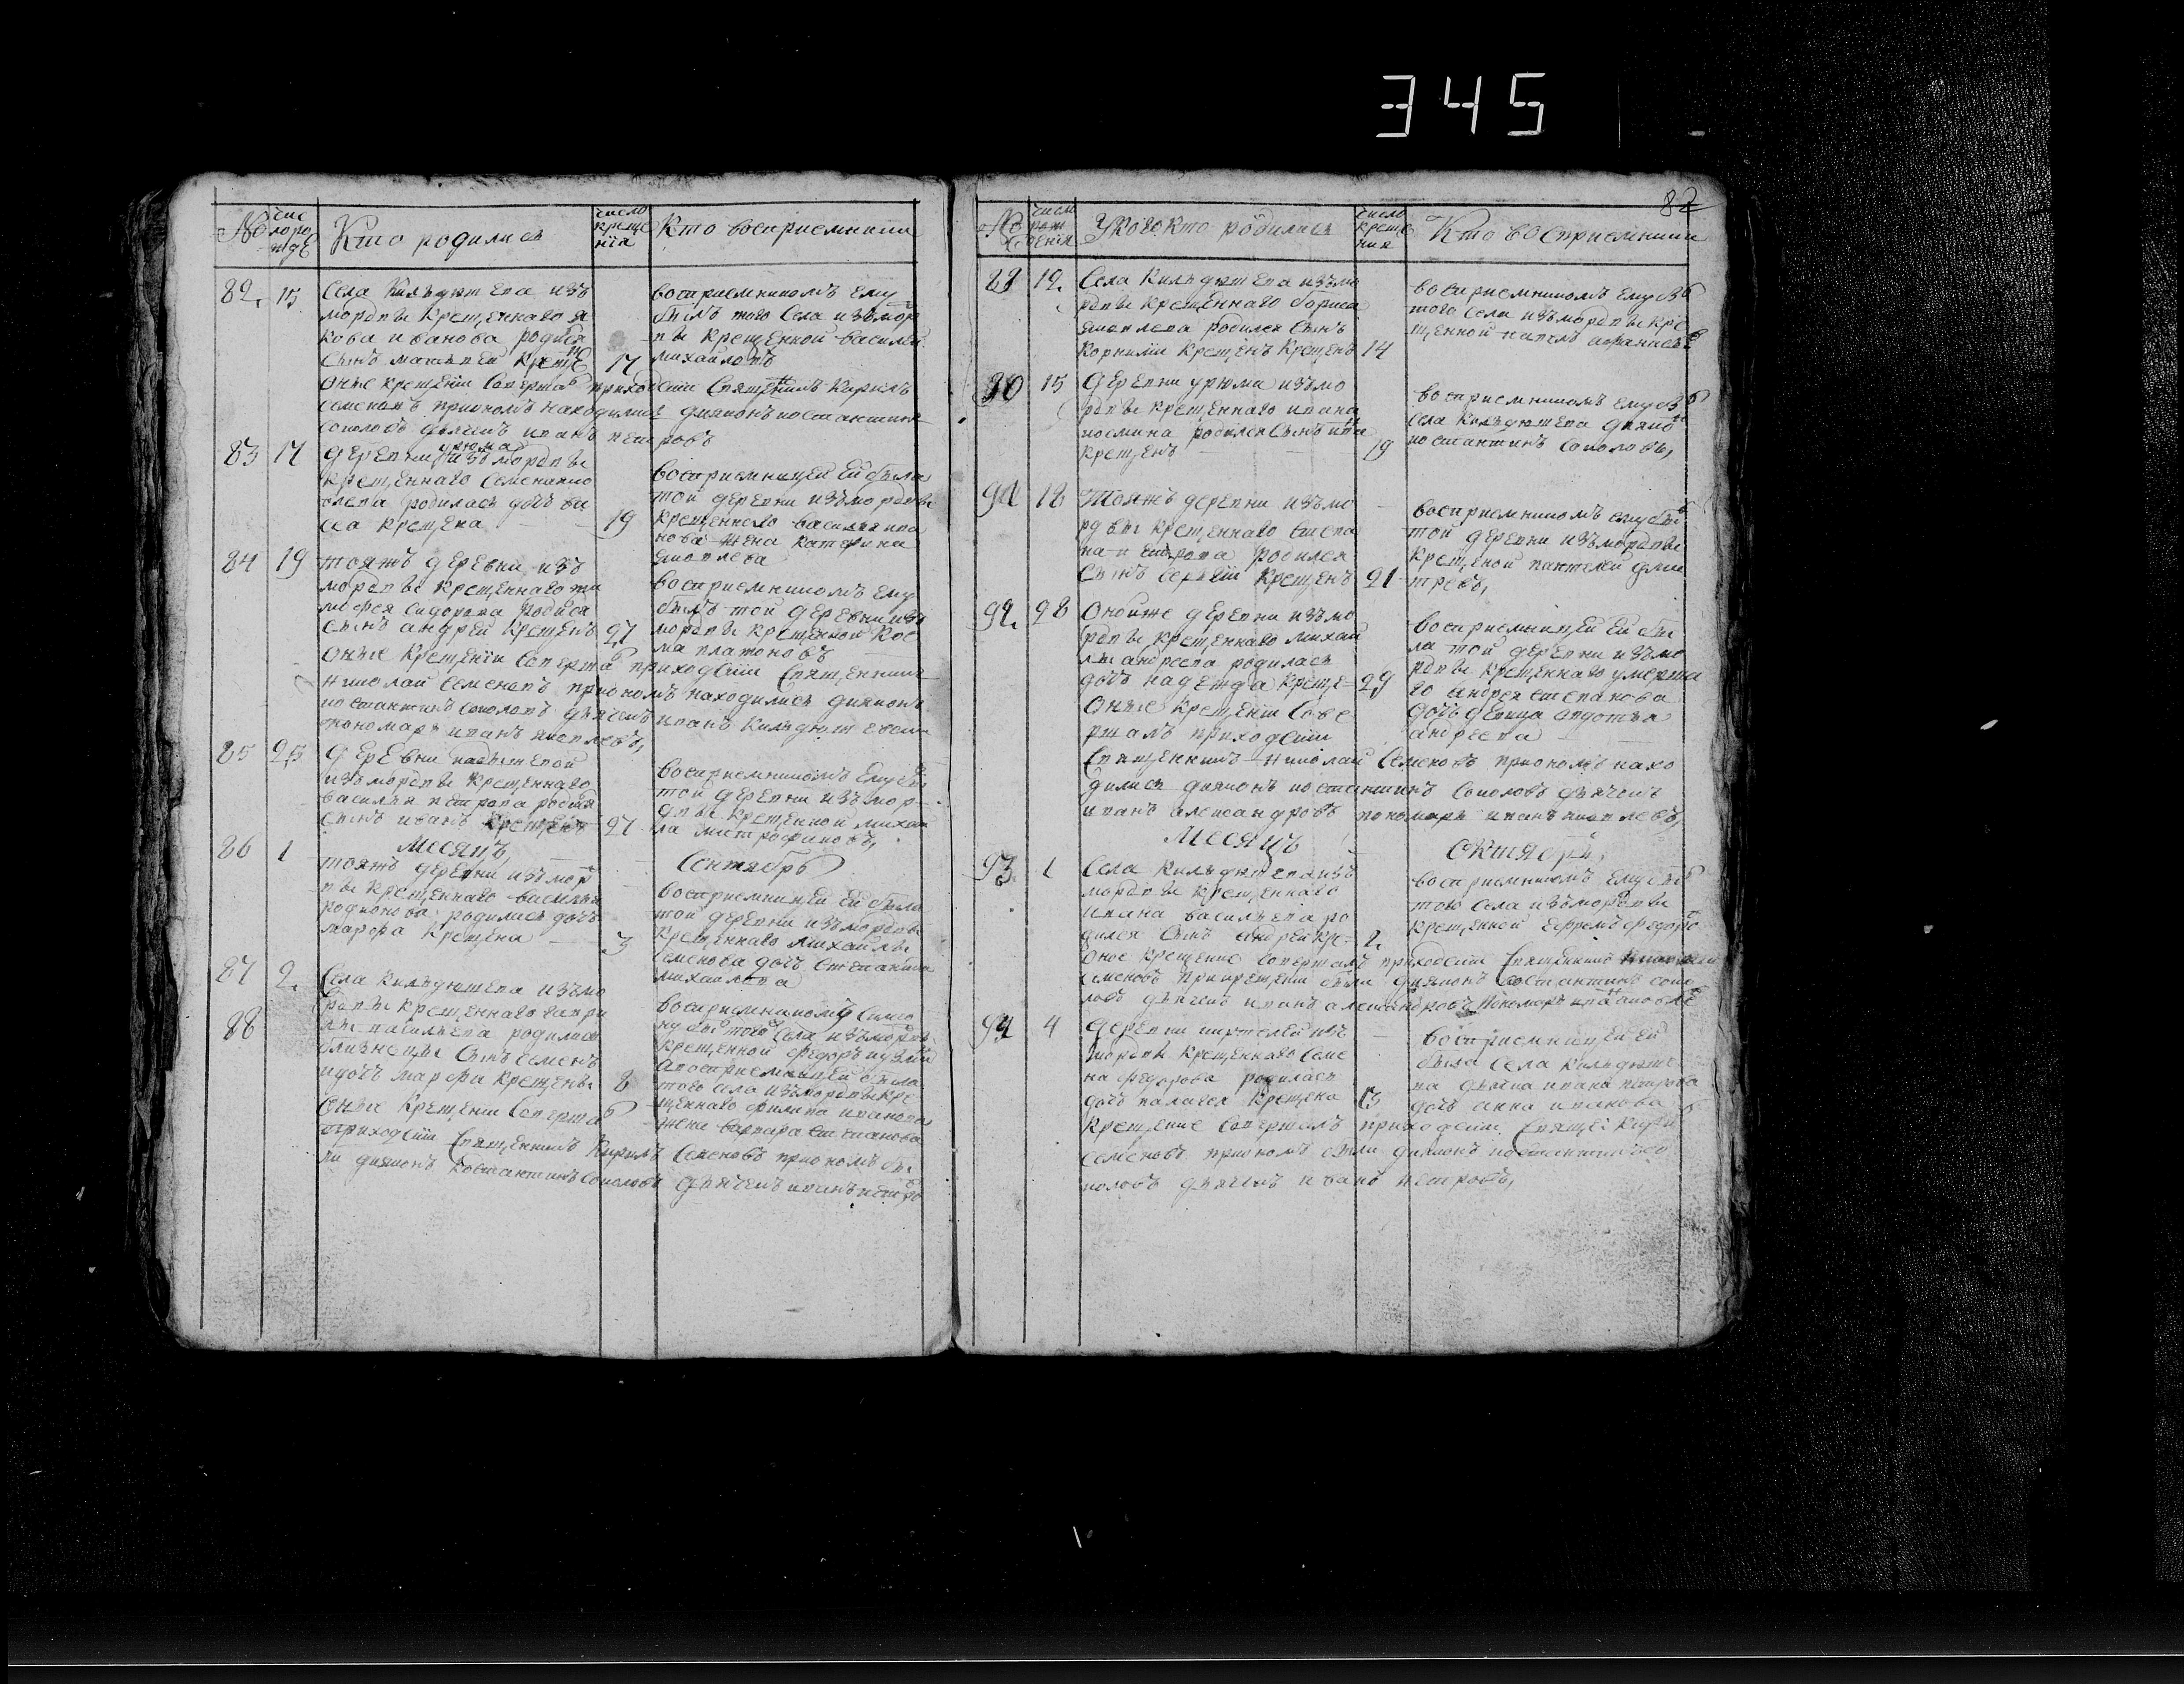 345
82
№
чис
лоро
жде
Кто родились
число
креще
нїя
Кто восприемники
82. 15 Села Кильдюшева изъ
мордвы Крещеннаго я
кова иванова родился
Сынъ матвей Креще
17
восприемникомъ ему
былъ того Села измор
вы Крещенной василей
михайловъ
оные крещении Соверша приходскии Священникъ Кирилъ
Семеновъ приномъ находились дияконъ костантинъ
Соколовъ дьячекъ иванъ петровъ
83 17 деревни урюма измордвы
крещеннаго Семена
родилась дочь
крещена
19
восприемницей ей была
той деревни измордвы
крещеннаго василья ива
нова жена катерина
яковлева
84 19 тояжъ деревни изъ
мордвы крещеннаго ти
мофея Сидорова родился
Сынъ андрей крещенъ 27
восприемникомъ ему
былъ той деревни изъ
мордвы крещенной Кос
ма платоновъ
оные Крещении Соверша приходскии Священникъ
николай Семеновъ приномъ находились диаконъ
костантинъ Соколовъ дьячекъ иванъ
пономарь иванъ яковлевъ,
85 25 деревни
измордвы крещеннаго
василья петрова родился
Сынъ иванъ крещенъ 27
восприемникомъ ему бы
той деревни измор
двы крещенной михаи
ла митрофановъ,
86 1 Месяцъ, Сентябрь
тояжъ деревни измор
вы крещеннаго василья
родионова родилась дочь
марфа крещена 3
восприемницей ей была
той деревни измордвы
крещеннаго михайлы
Семенова дочь Степанида
михайлова
87 2. Села Кильдюшева изъмо
рдвы крещеннаго гаври
лы васильева родились
88
близнецы Сынъ Семенъ
идочь марфа крещены 8
восприемникомъ Симео
ну бы того Села измордв
крещенной федоръ
авосприемницей была
того села измордвы кре
щеннаго филипа иванова
жена варвара Степанова
оные крещении Соверша
приходскии Священникъ Кирилъ Семеновъ приномъ бы
ли диаконъ Костантинъ Соколовъ дьячекъ иванъ петро
№
числ
рож
дения
У Кого Кто родились
число
креще
ния
Кто восприемники
89 12. Села Кильдюшева изъмо
рдвы крещеннаго бориса
яковлева родился Сынъ
Корнилии крещенъ крещенъ 14
восприемникомъ ему бы
того Села измордвы кре
щенной
90 15 деревни урюма изъмо
рдвы крещеннаго ивана
космина родился Сынъ ива
крещенъ 19
восприемникомъ ему бы
Села Кильдюшева диако
костантинъ Соколовъ,
91 18 тояжъ деревни изъмо
рдвы крещеннаго Степа
на петрова родился
Сынъ Сергѣй крещенъ 21
восприемникомъ ему бы
той деревни измордвы
крещеной пантелей дми
тревъ,
92. 28 оной же деревни изъмо
рдвы крещеннаго михай
лы андреева родилась
дочь надежда креще- 29
восприемницей ей бы
ла той деревни изъмо
рдвы крещеннаго умерша
го андрея Степанова
дочь девица авдотья
андреева
оные крещении Сове
ршалъ приходскии
Священникъ николай Семеновъ приномъ нахо
дились диаконъ костантинъ Соколовъ дьячекъ
иванъ александровъ пономарь иванъ яковлевъ,
Месяцъ октябрь,
93. 1 Села Кильдюшева изъ
мордвы крещеннаго
ивана васильева ро
дился Сынъ андрей кре- 2.
восприемникомъ ему бы
того Села измордвы
крещенной Ефремъ федоро
оное крещение Совершалъ приходскии Священникъ
Семеновъ прикрещении были диаконъ Костантинъ Соко
ловъ дьячекъ иванъ александровъ пономарь ива яковле
94 4 деревни изъ
мордвы крещеннаго Семе
на федорова родилась
дочь пелагея крещена
восприемницей ей
была Села Кильдюше
ва дьячка ивана петрова
дочь анна иванова
Крещение Совершалъ приходскии Священ Кири
Семеновъ приномъ были диаконъ костантинъ Со
коловъ дьячекъ иванъ петровъ,